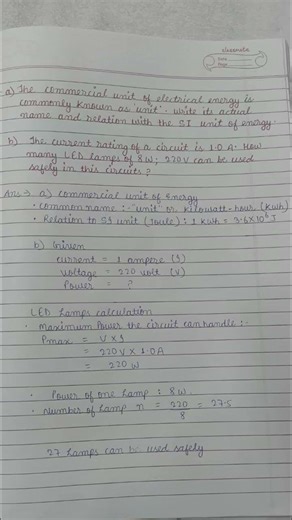 classmate
Date
Page
a) The commercial unit of electrical energy is
commonly known as 'unit'. Write its actual
name and relation with the SI unit of energy.
b) The current rating of a circuit is 1.0 A. How
many LED lamps of 8W, 220V can be used
safely in this circuits ?
Ans → a) commercial unit of Energy
• common name :- "unit" or kilowatt-hour (kWh)
• Relation to SI unit (Joule) : 1 kWh = 3.6X10⁶ J
b) Given
current = 1 ampere (I)
voltage = 220 volt (V)
Power = ?
LED Lamps calculation
• Maximum Power the circuit can handle :-
Pmax = V X I
= 220 V X 1.0A
= 220 W
• Power of one lamp : 8 W.
• Number of lamp n = 220/8 = 27.5
27 Lamps can be used safely